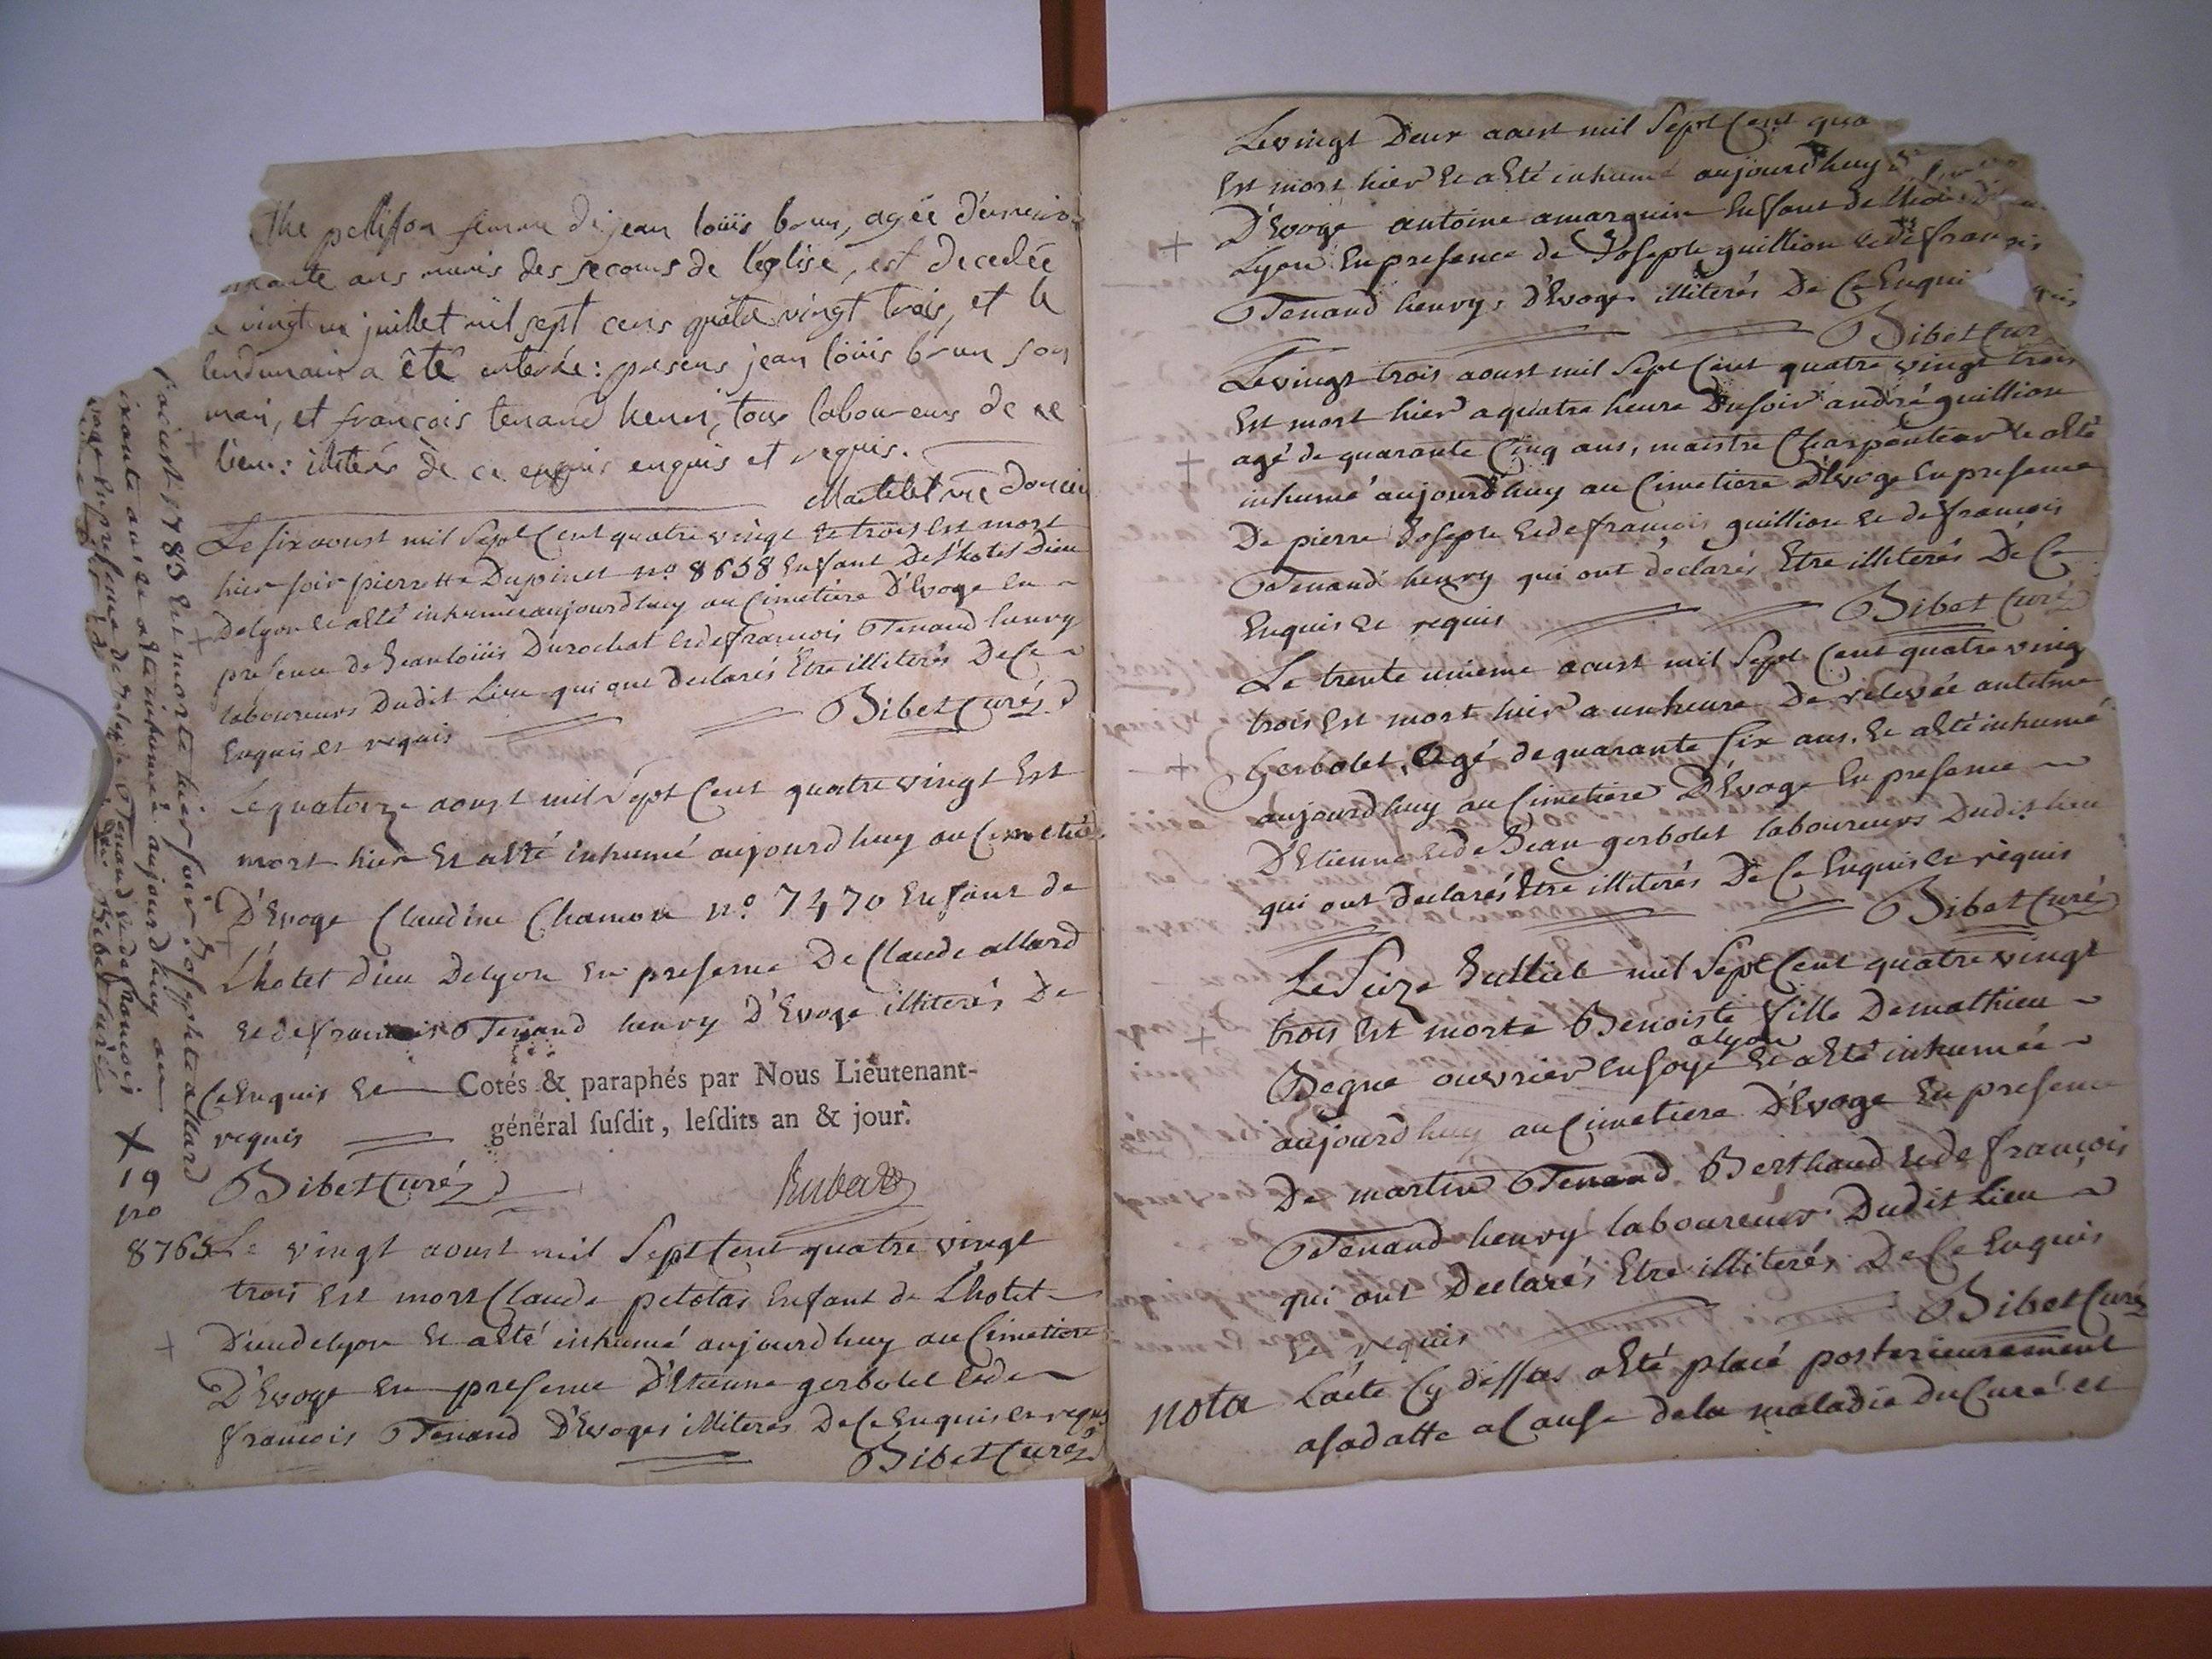 the pellisson femme de jean loüis brun, agée d'environ
ans munis des secours de l'eglise, est decedée
vingt un juillet mil sept cens quatre vingt trois, et le
lendemain a été enterrée: presens jean loüis brun son
mari, et françois tenand henri, tous laboureurs de ce
lieu: illiterés de ce enquis et requis.
Martelet vic
Le six aoust mil Sept Cent quatre vingt et trois est mort
hier soir pierrette Dupinet no 8658 Enfant De l'hotel Dieu
De lyon et a Eté inhumée aujourdhuy au Cimetiere D'Evoge En
presence de Jean loüis Durochat et de francois Tenand henry
laboureurs Dudit Lieu qui ont Declarés Etre illiterés De Ce
Enquis et requis Bibet Curé
Le quatorze aoust mil Sept Cent quatre vingt Est
mort hier Et a Eté inhumé aujourdhuy au Cimetiere
D'Evoge Claudine Chamon no. 7470 Enfant de
L'hotel Dieu De lyon En presence De Claude allard
et de francois Tenand henry D'Evoge illiterés De
Ce Enquis Et
requis
Cotés & paraphés par Nous Lieutenant-
général susdit, lesdits an & jour.
Bibet Curé
Le vingt aoust mil Sept Cent quatre vingt
trois est mort Claude petetas Enfant de L'hotel
Dieu de lyon Et a Eté inhumé aujourdhuy au Cimetiere
D'Evoge En presence D'Etienne gerbolet et de
francois Tenand D'Evoges illiteres De Ce Enquis et requis
Bibet Curé
aoust 1783 Est morte hier soir Josephte allard
ans et a Eté inhumée aujourdhuy au
Evoge En presence de Tenand et de francois
Bibet Curé
19
no
8765
Le vingt Deux aoust mil Sept Cent qua
Est mort hier et a Eté inhumé aujourdhuy
D'Evoge antoine amarguin Enfant de
Lyon En presence de Joseph guillion et de francois
Tenand henry D'Evoges illiterés De Ce Enqui
Bibet Cur
Le vingt trois aoust mil Sept Cent quatre vingt trois
Est mort hier a quatre heure Du soir andré guillion
agé de quarante Cinq ans, maistre Charpentier et a Eté
inhumé aujourdhuy au Cimetiere D'Evoge En presence
De pierre Joseph et de francois guillion et de francois
Tenand henry qui ont declarés Etre illiterés De Ce
Enquis et requis Bibet Curé
Le trente unieme aoust mil Sept Cent quatre ving
trois Est mort hier a un heure De relevée antelme
Gerbolet, agé de quarante six ans. Et a Eté inhumé
aujourdhuy au Cimetiere D'Evoge En presence
D'Etienne et de Jean gerbolet laboureurs Dudit lieu
qui ont Declarés Etre illiterés De Ce Enquis et requis
Bibet Curé
Le Seize Julliet mil Sept Cent quatre vingt
trois Est morte Benoiste fille De mathieu
Begue ouvrier En soye a lyon Et a Eté inhumée
aujourdhuy au Cimetiere D'Evoge En presence
De martin Tenand Berthaud et de francois
Tenand henry laboureurs Dudit Lieu
qui ont Declarés Etre illiterés De Ce Enquis
Et requis Bibet Curé
nota L'acte Cy dessus a Eté placé posterieurement
a sa datte a Cause de la maladie Du Curé et